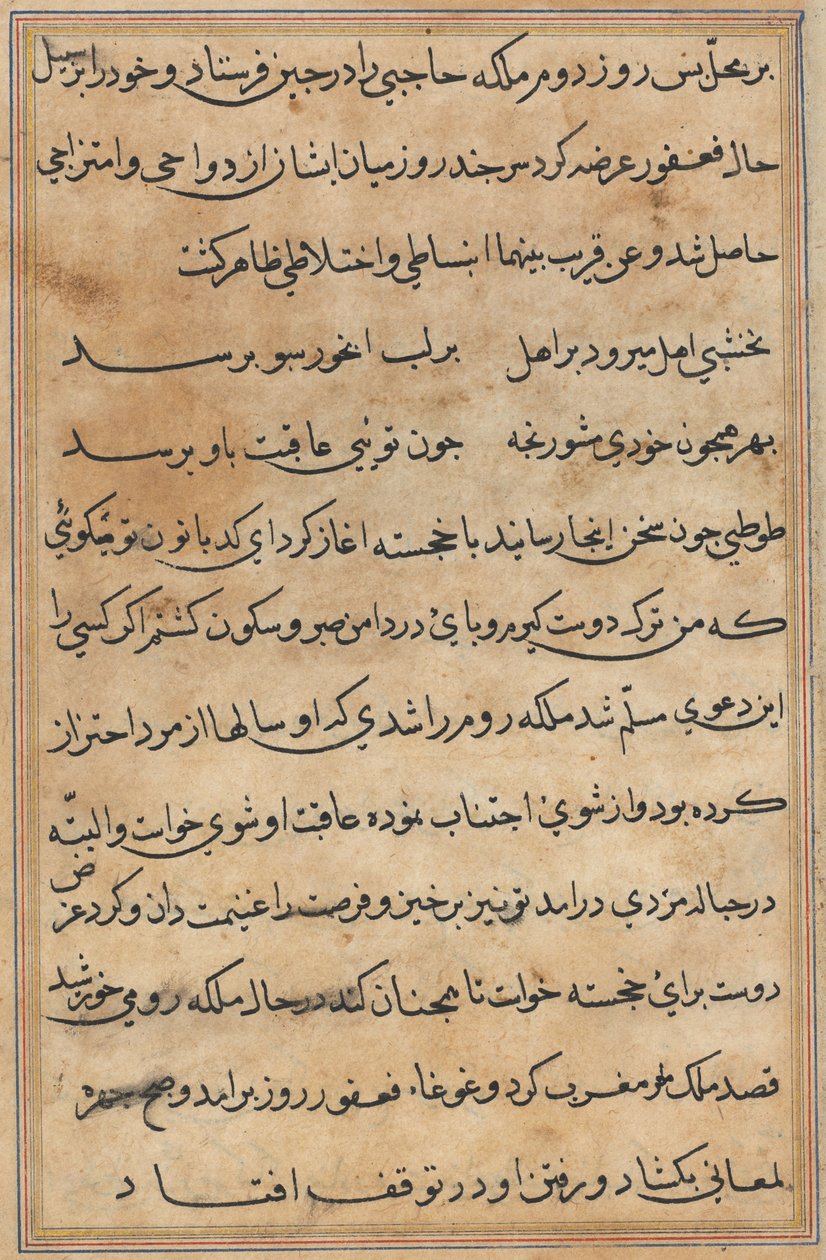 بر محلّ بس روز دوم ملکه حاجبي را در جين فرستاد و خود را بر سبيل
حال فغفور عرضه کرد سر جند روز ميان ايشان ازدواجي و امتزاجي
حاصل شد و عن قريب بينهما انبساطي و اختلاطي ظاهر کشت
نخشبي اهل ميرود بر اهل بر لب ابخور سبو برسد
بهر همجون خودي مشو رنجه جون تويئي عاقبت باو برسد
طوطي جون سخن اينجا رسانيد با خجسته اغاز کرد اي کدبانون تو ميکوئي
که من ترک دوست کيرم و پاي در دامن صبر و سکون کشم اکر کسي را
اين دعوي مسلّم شد ملکه روم را شدي که او سالها از مرد احتراز
کرده بود و از شوي اجتناب نموده عاقبت او شوي خواست و البتّه
در حباله مردي درامد تو نيز برخيز و فرصت را غنيمت دان و کرد عزض
دوست براي خجسته خواست تا همجنان کند در حال ملکه رومي خورشيد
قصد ملک مغرب کرد و غوغاء فغفور روز برامد و صبح جهره
لمعاني بکشاد و رفتن او در توقف افتاد